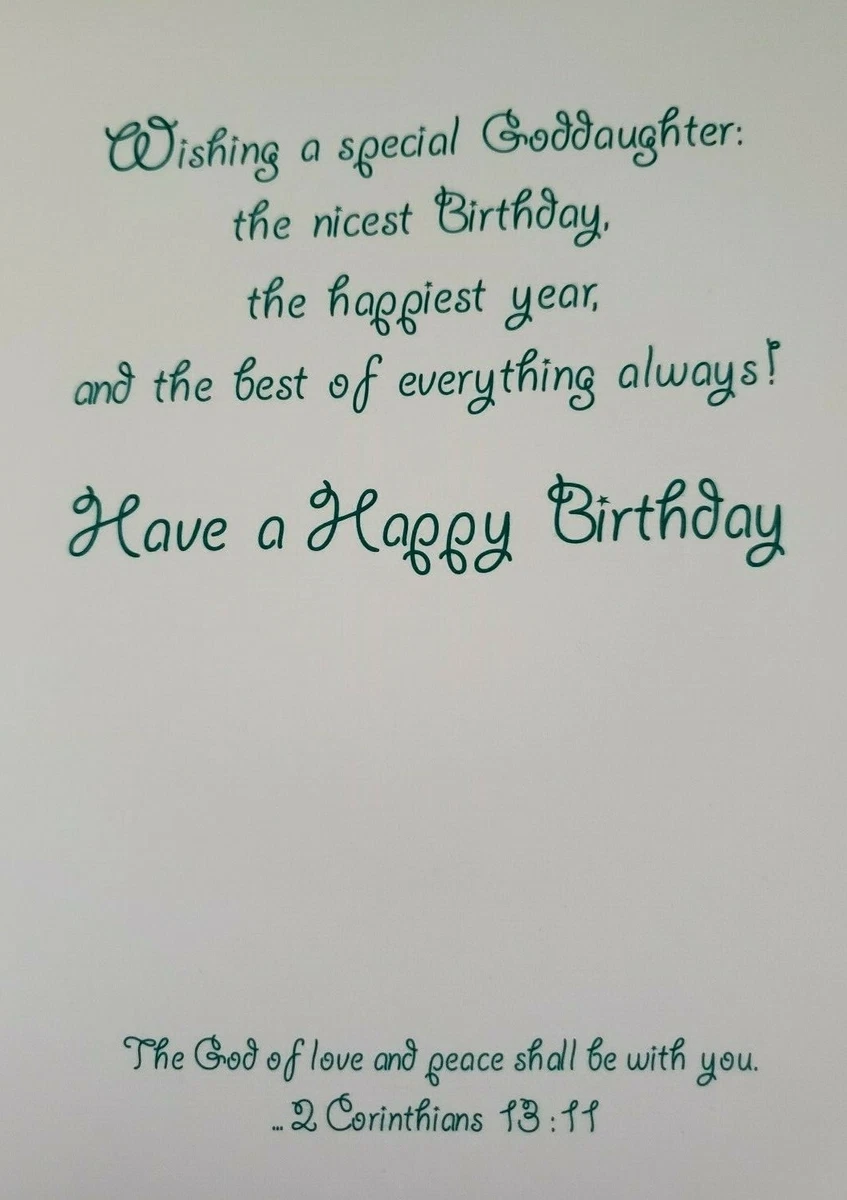 Wishing a special Goddaughter:
the nicest Birthday,
the happiest year,
and the best of everything always!
Have a Happy Birthday
The God of love and peace shall be with you.
... 2 Corinthians 13:11